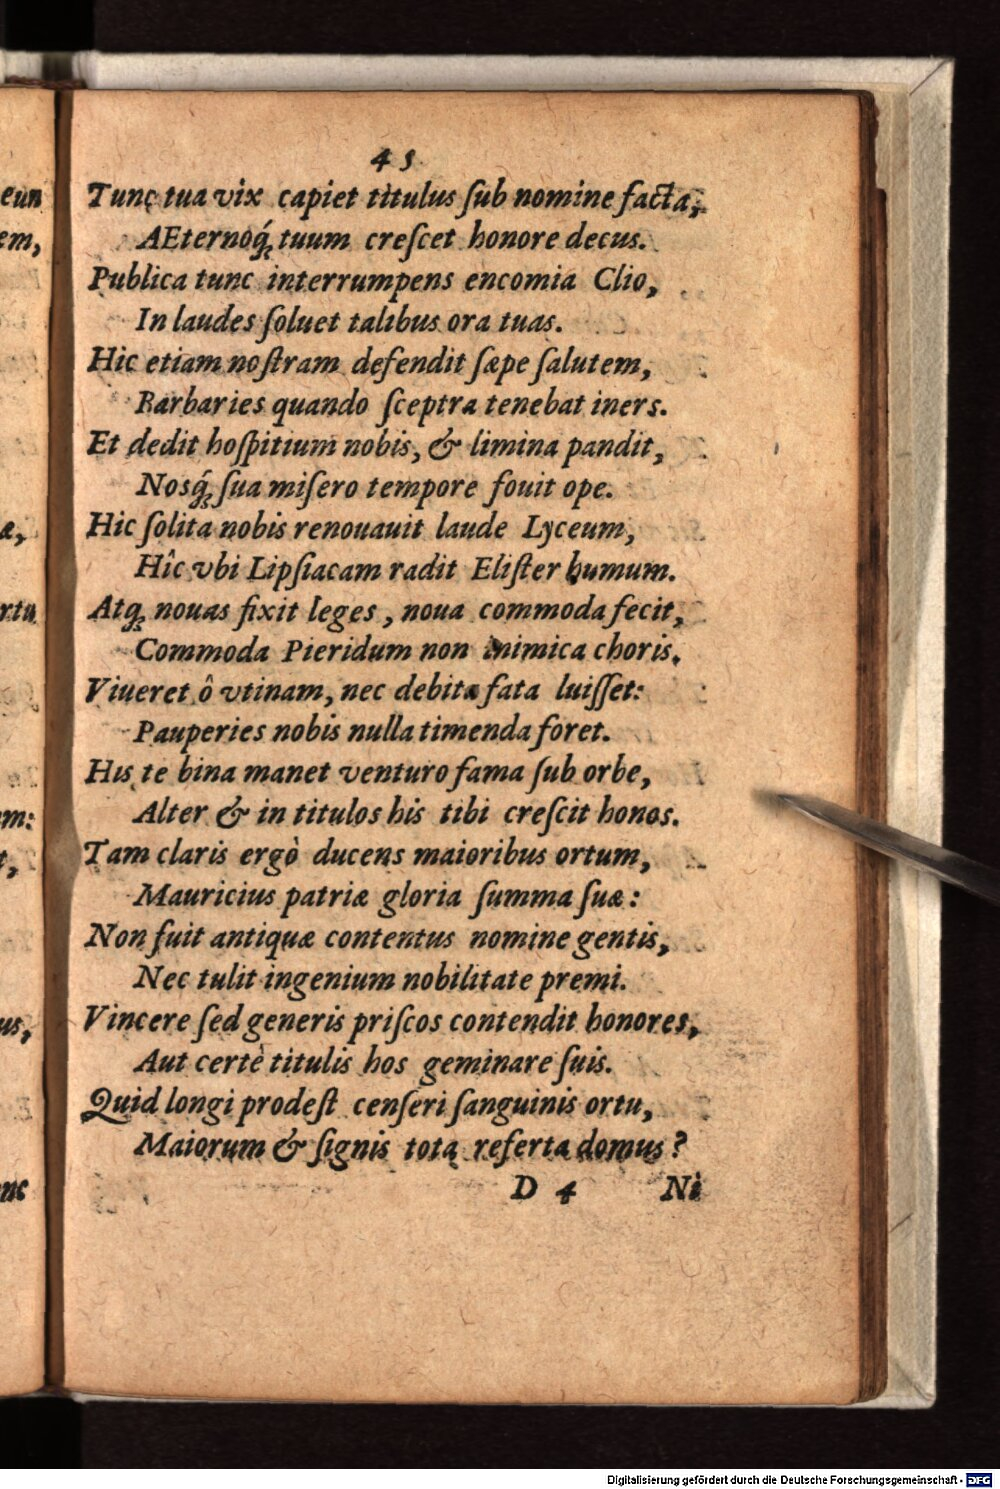 45
Tunc tua vix capiet titulus ſub nomine facta,
AEternoq́ꝫ tuum creſcet honore decus.
Publica tunc interrumpens encomia Clio,
In laudes ſoluet talibus ora tuas.
Hic etiam noſtram defendit ſæpe ſalutem,
Barbaries quando ſceptra tenebat iners.
Et dedit hoſpitium nobis, & limina pandit,
Nosq́ꝫ ſua miſero tempore fouit ope.
Hic ſolita nobis renouauit laude Lyceum,
Hîc vbi Lipſiacam radit Eliſter humum.
Atqꝫ nouas fixit leges, noua commoda fecit,
Commoda Pieridum non inimica choris.
Viueret ô vtinam, nec debita fata luiſſet:
Pauperies nobis nulla timenda foret.
His te bina manet venturo fama ſub orbe,
Alter & in titulos his tibi creſcit honos.
Tam claris ergò ducens maioribus ortum,
Mauricius patriæ gloria ſumma ſuæ:
Non fuit antiquæ contentus nomine gentis,
Nec tulit ingenium nobilitate premi.
Vincere ſed generis priſcos contendit honores,
Aut certè titulis hos geminare ſuis.
Quid longi prodeſt cenſeri ſanguinis ortu,
Maiorum & ſignis tota referta domus?
D 4 Ni
eun
em,
æ,
rtu
m:
t,
us,
nc
Digitalisierung gefördert durch die Deutsche Forschungsgemeinschaft - DFG